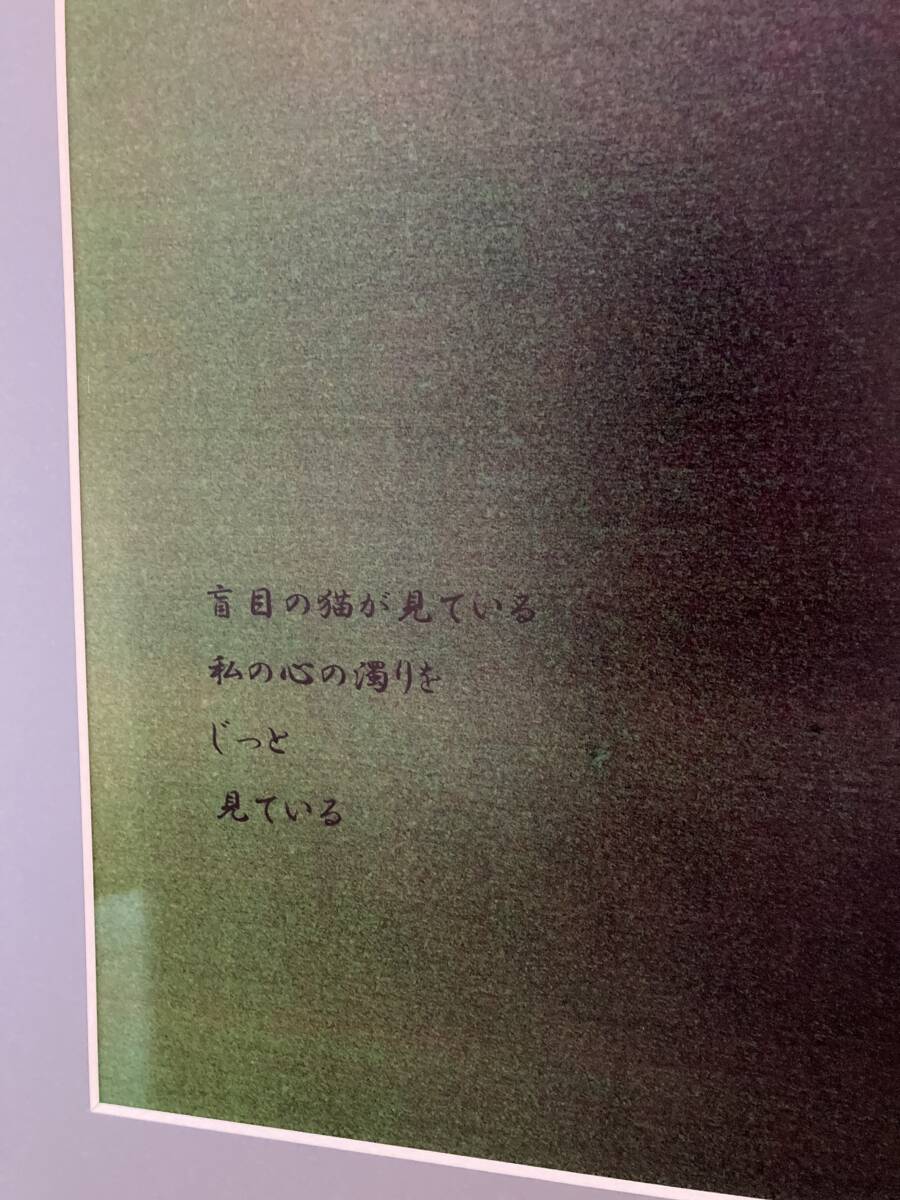 盲目の猫が見ている
私の心の濁りを
じっと
見ている